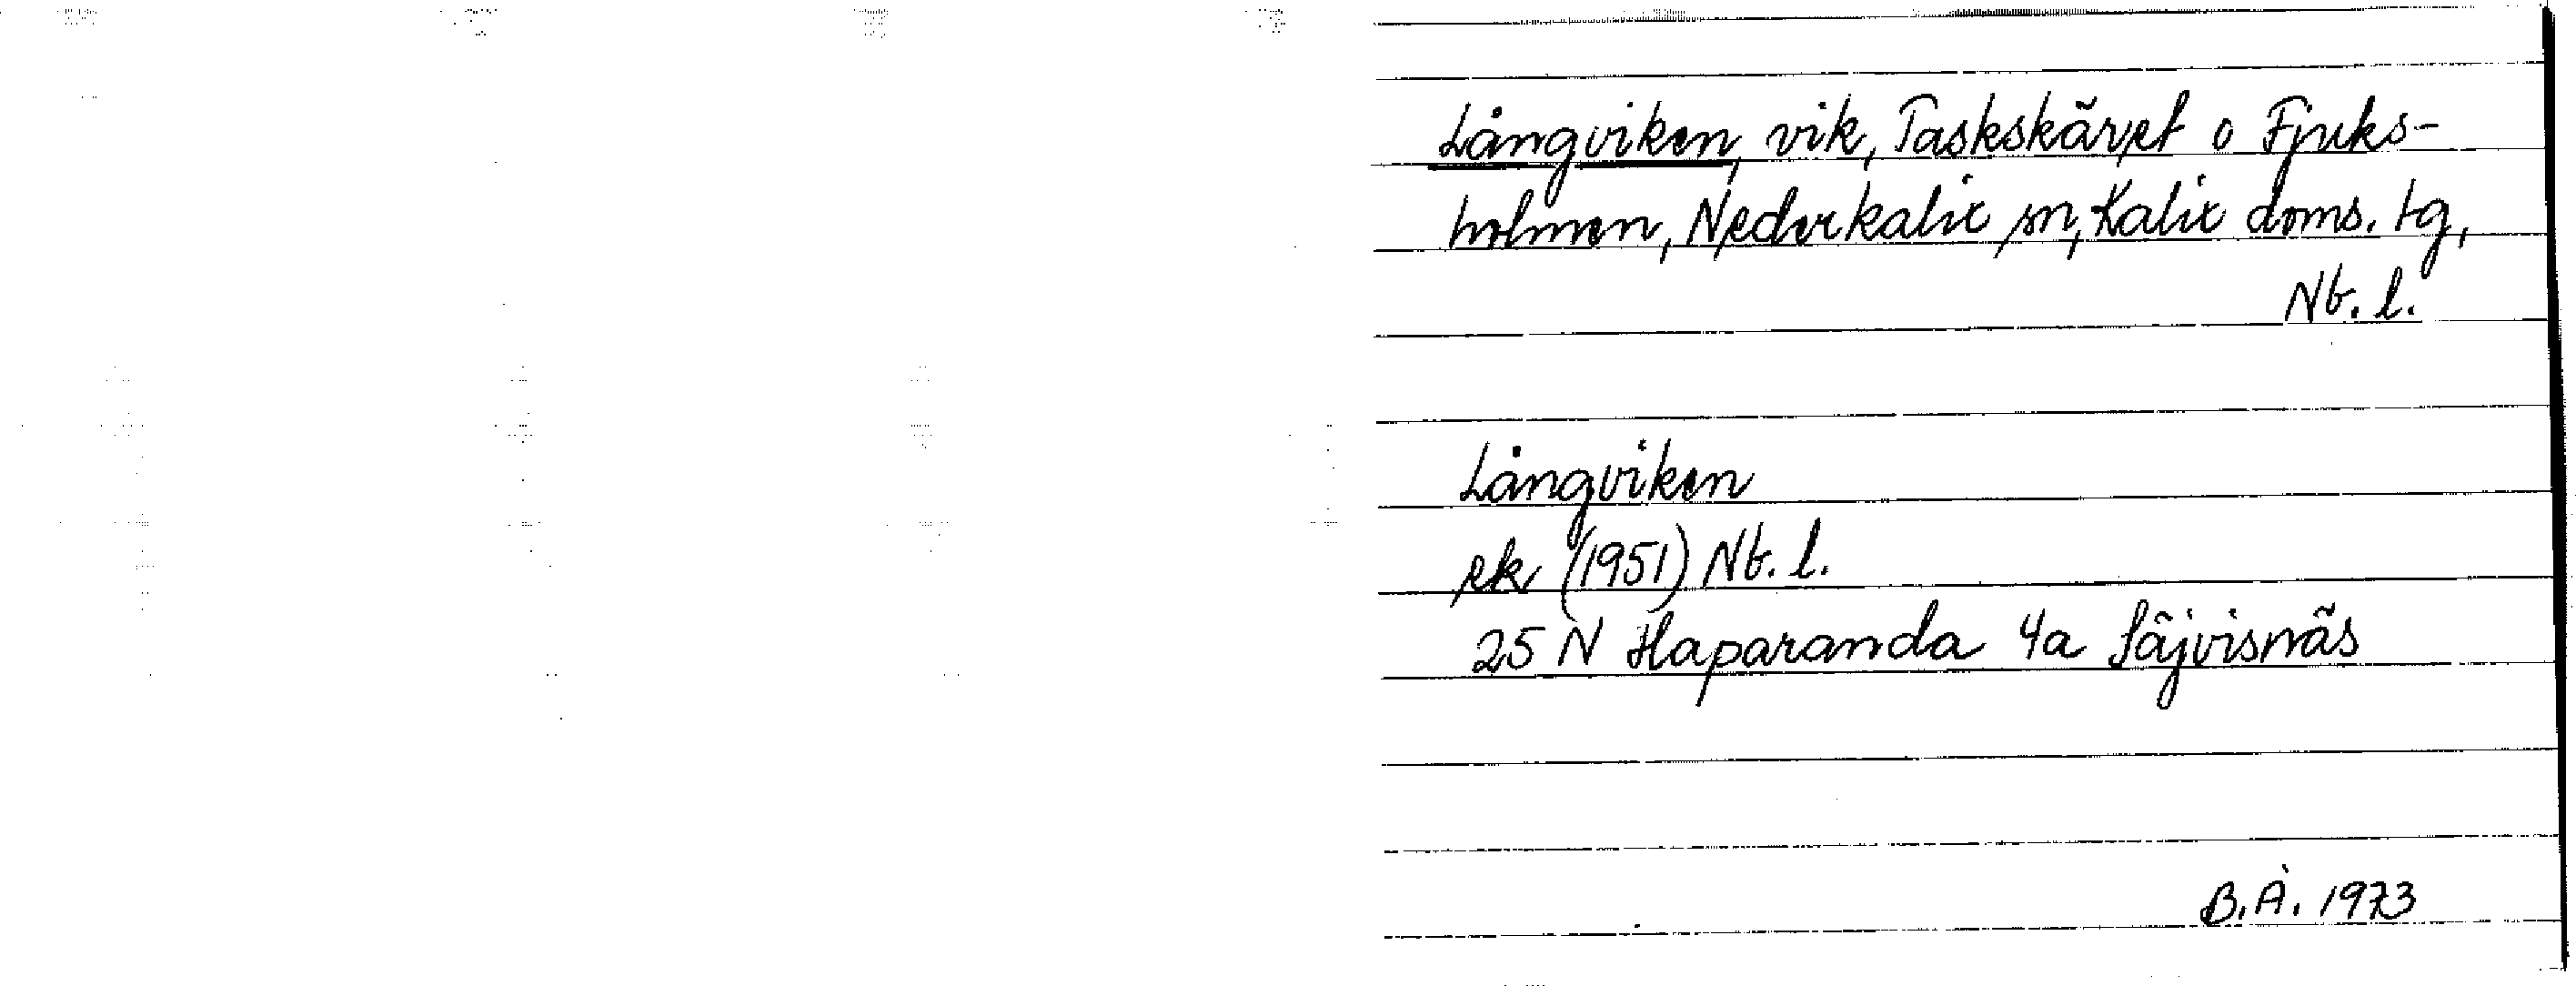 Långviken, vik, Taskskäret o Fjuks-
holmen, Nederkalix sn, Kalix doms. tg,
Nb. l.
Långviken
ek (1951) Nb. l.
25 N Haparanda 4a Säjvisnäs
B.Å. 1973